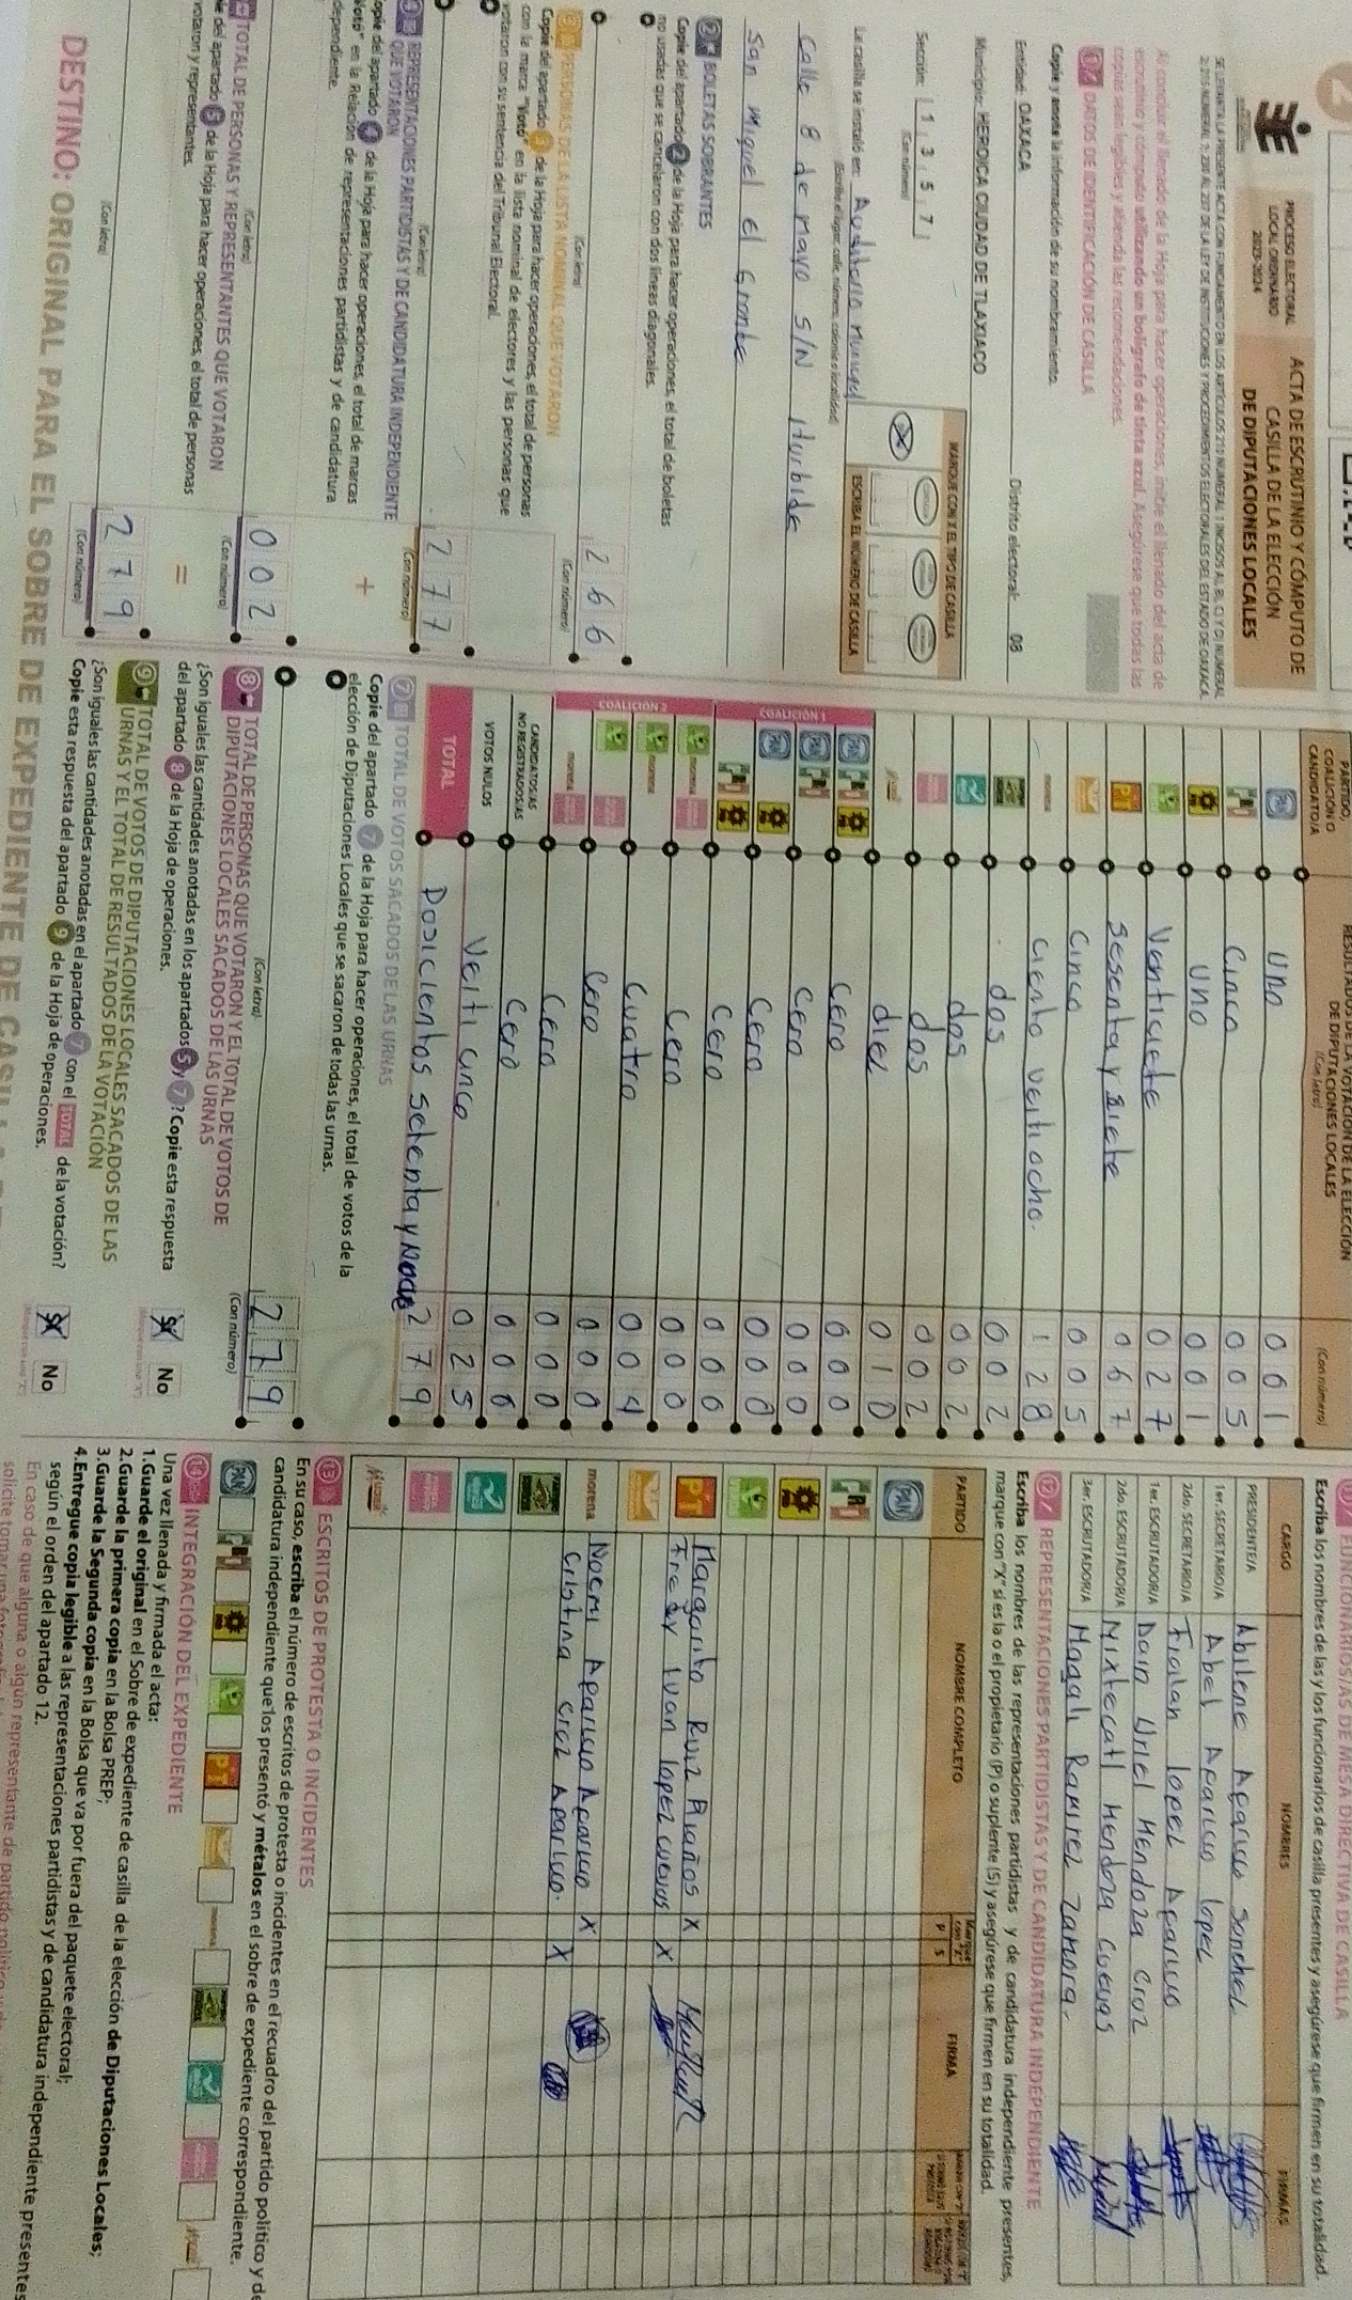 PROCESO ELECTORAL
LOCAL ORDINARIO
2023-2024
ACTA DE ESCRUTINIO Y CÓMPUTO DE
CASILLA DE LA ELECCIÓN
DE DIPUTACIONES LOCALES
Al concluir el llenado de la Hoja para hacer operaciones, inicie el llenado del acta de
escrutinio y cómputo utilizando un bolígrafo de tinta azul. Asegúrese que todas las
copias sean legibles y atienda las recomendaciones.
1 DATOS DE IDENTIFICACIÓN DE CASILLA
Copie y anote la información de su nombramiento.
Entidad: OAXACA Distrito electoral: 08
Municipio: HEROICA CIUDAD DE TLAXIACO
Sección: 1 3 5 7
(Con número)
MARQUE CON X EL TIPO DE CASILLA
ESCRIBA EL NÚMERO DE CASILLA
La casilla se instaló en: Auditorio Municipal
(Escriba el lugar, calle, número, colonia o localidad)
Calle 8 de mayo S/N Iturbide
San Miguel el Grande
2 BOLETAS SOBRANTES
Copie del apartado 2 de la Hoja para hacer operaciones, el total de boletas
no usadas que se cancelaron con dos líneas diagonales.
(Con letra)
2 6 6
(Con número)
3 PERSONAS DE LA LISTA NOMINAL QUE VOTARON
Copie del apartado 3 de la Hoja para hacer operaciones, el total de personas
con la marca "Votó" en la lista nominal de electores y las personas que
votaron con su sentencia del Tribunal Electoral.
(Con letra)
2 7 7
(Con número)
4 REPRESENTACIONES PARTIDISTAS Y DE CANDIDATURA INDEPENDIENTE
QUE VOTARON
Copie del apartado 4 de la Hoja para hacer operaciones, el total de marcas
"Votó" en la Relación de representaciones partidistas y de candidatura
independiente.
+
(Con letra)
0 0 2
(Con número)
TOTAL DE PERSONAS Y REPRESENTANTES QUE VOTARON
del apartado 5 de la Hoja para hacer operaciones, el total de personas
votaron y representantes.
=
(Con letra)
2 7 9
(Con número)
DESTINO: ORIGINAL PARA EL SOBRE DE EXPEDIENTE DE CASILLA
PARTIDO,
COALICIÓN O
CANDIDATO/A
RESULTADOS DE LA VOTACIÓN DE LA ELECCIÓN
DE DIPUTACIONES LOCALES
(Con letra)
(Con número)
PAN Uno 0 0 1
PRI Cinco 0 0 5
PRD Uno 0 0 1
Ventisiete 0 2 7
PT Sesenta y siete 0 6 7
Cinco 0 0 5
morena Ciento veitiocho. 1 2 8
dos 0 0 2
dos 0 0 2
dos 0 0 2
diez 0 1 0
COALICIÓN 1
Cero 0 0 0
Cero 0 0 0
Cero 0 0 0
Cero 0 0 0
COALICIÓN 2
Cero 0 0 0
Cuatro 0 0 4
Cero 0 0 0
Cero 0 0 0
CANDIDATOS/AS
NO REGISTRADOS/AS Cero 0 0 0
VOTOS NULOS Veiti cinco 0 2 5
TOTAL Dosicientos setenta y Nueve 2 7 9
7 TOTAL DE VOTOS SACADOS DE LAS URNAS
Copie del apartado 7 de la Hoja para hacer operaciones, el total de votos de la
elección de Diputaciones Locales que se sacaron de todas las urnas.
(Con letra)
2 7 9
(Con número)
8 TOTAL DE PERSONAS QUE VOTARON Y EL TOTAL DE VOTOS DE
DIPUTACIONES LOCALES SACADOS DE LAS URNAS
¿Son iguales las cantidades anotadas en los apartados 5 y 7? Copie esta respuesta
del apartado 8 de la Hoja de operaciones.
Sí No
9 TOTAL DE VOTOS DE DIPUTACIONES LOCALES SACADOS DE LAS
URNAS Y EL TOTAL DE RESULTADOS DE LA VOTACIÓN
¿Son iguales las cantidades anotadas en el apartado 7 con el TOTAL de la votación?
Copie esta respuesta del apartado 9 de la Hoja de operaciones.
Sí No
FUNCIONARIOS/AS DE MESA DIRECTIVA DE CASILLA
Escriba los nombres de las y los funcionarios de casilla presentes y asegúrese que firmen en su totalidad.
CARGO NOMBRES FIRMAS
PRESIDENTE/A Abilene Aparicio Sanchez
1er. SECRETARIO/A Abel Aparicio lopez
2do. SECRETARIO/A Froilan lopez Aparicio
1er. ESCRUTADOR/A Dain Uriel Mendoza Cruz
2do. ESCRUTADOR/A Mixtecatl Mendoza Cuevas
3er. ESCRUTADOR/A Magali Ramirez Zamora.
12 REPRESENTACIONES PARTIDISTAS Y DE CANDIDATURA INDEPENDIENTE
Escriba los nombres de las representaciones partidistas y de candidatura independiente presentes,
marque con "X" si es la o el propietario (P) o suplente (S) y asegúrese que firmen en su totalidad.
PARTIDO NOMBRE COMPLETO P S FIRMA
PAN
PRI
PT Margarito Ruiz Riaños X
Fredy Ivan lopez cuevas X
morena Noemi Aparicio Aparicio X
Cristina Cruz Aparicio. X
13 ESCRITOS DE PROTESTA O INCIDENTES
En su caso, escriba el número de escritos de protesta o incidentes en el recuadro del partido político y de
candidatura independiente que los presentó y métalos en el sobre de expediente correspondiente.
14 INTEGRACIÓN DEL EXPEDIENTE
Una vez llenada y firmada el acta:
1.Guarde el original en el Sobre de expediente de casilla de la elección de Diputaciones Locales;
2.Guarde la primera copia en la Bolsa PREP;
3.Guarde la Segunda copia en la Bolsa que va por fuera del paquete electoral;
4.Entregue copia legible a las representaciones partidistas y de candidatura independiente presentes
según el orden del apartado 12.
En caso de que alguna o algún representante de partido político